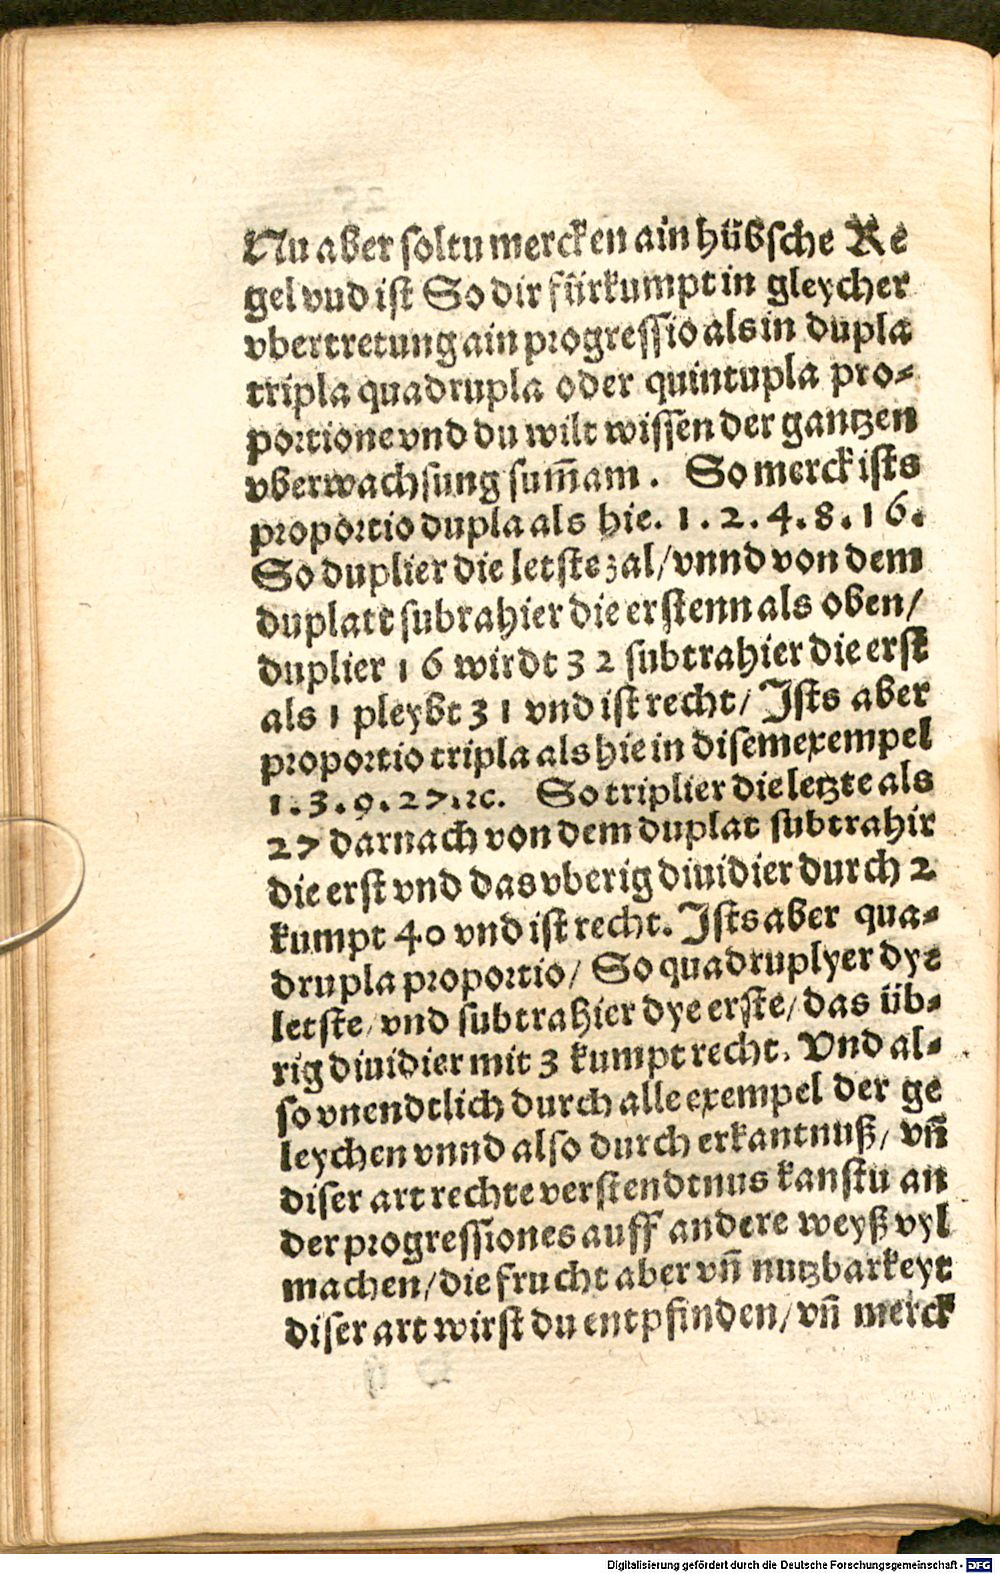 Nu aber soltu mercken ain hübsche Re
gel vud ist So dir fürkumpt in gleycher
vbertretung ain progressio als in dupla
tripla quadrupla oder quintupla pro⸗
portione vnd du wilt wissen der gantzen
vberwachsung sum̄am. So merck ists
proportio dupla als hie. 1. 2. 4. 8. 16.
So duplier die letste zal/ vnnd von dem
duplatt subrahier die erstenn als oben/
duplier 16 wirdt 32 subtrahier die erst
als 1 pleybt 31 vnd ist recht/ Ists aber
proportio tripla als hie in disem exempel
1. 3. 9. 27. ꝛc. So triplier die letzte als
27 darnach von dem duplat subtrahir
die erst vnd das vberig diuidier durch 2
kumpt 40 vnd ist recht. Ists aber qua⸗
drupla proportio/ So quadruplyer dye
letste/ vnd subtrahier dye erste/ das üb⸗
rig diuidier mit 3 kumpt recht. Vnd al⸗
so vnendtlich durch alle exempel der ge
leychen vnnd also durch erkantnuß/ vn̄
diser art rechte verstendtnus kanstu an
der progressiones auff andere weyß vyl
machen/ die frucht aber vn̄ nutzbarkeyt
diser art wirst du entpfinden/ vn̄ merck
Digitalisierung gefördert durch die Deutsche Forschungsgemeinschaft - DFG